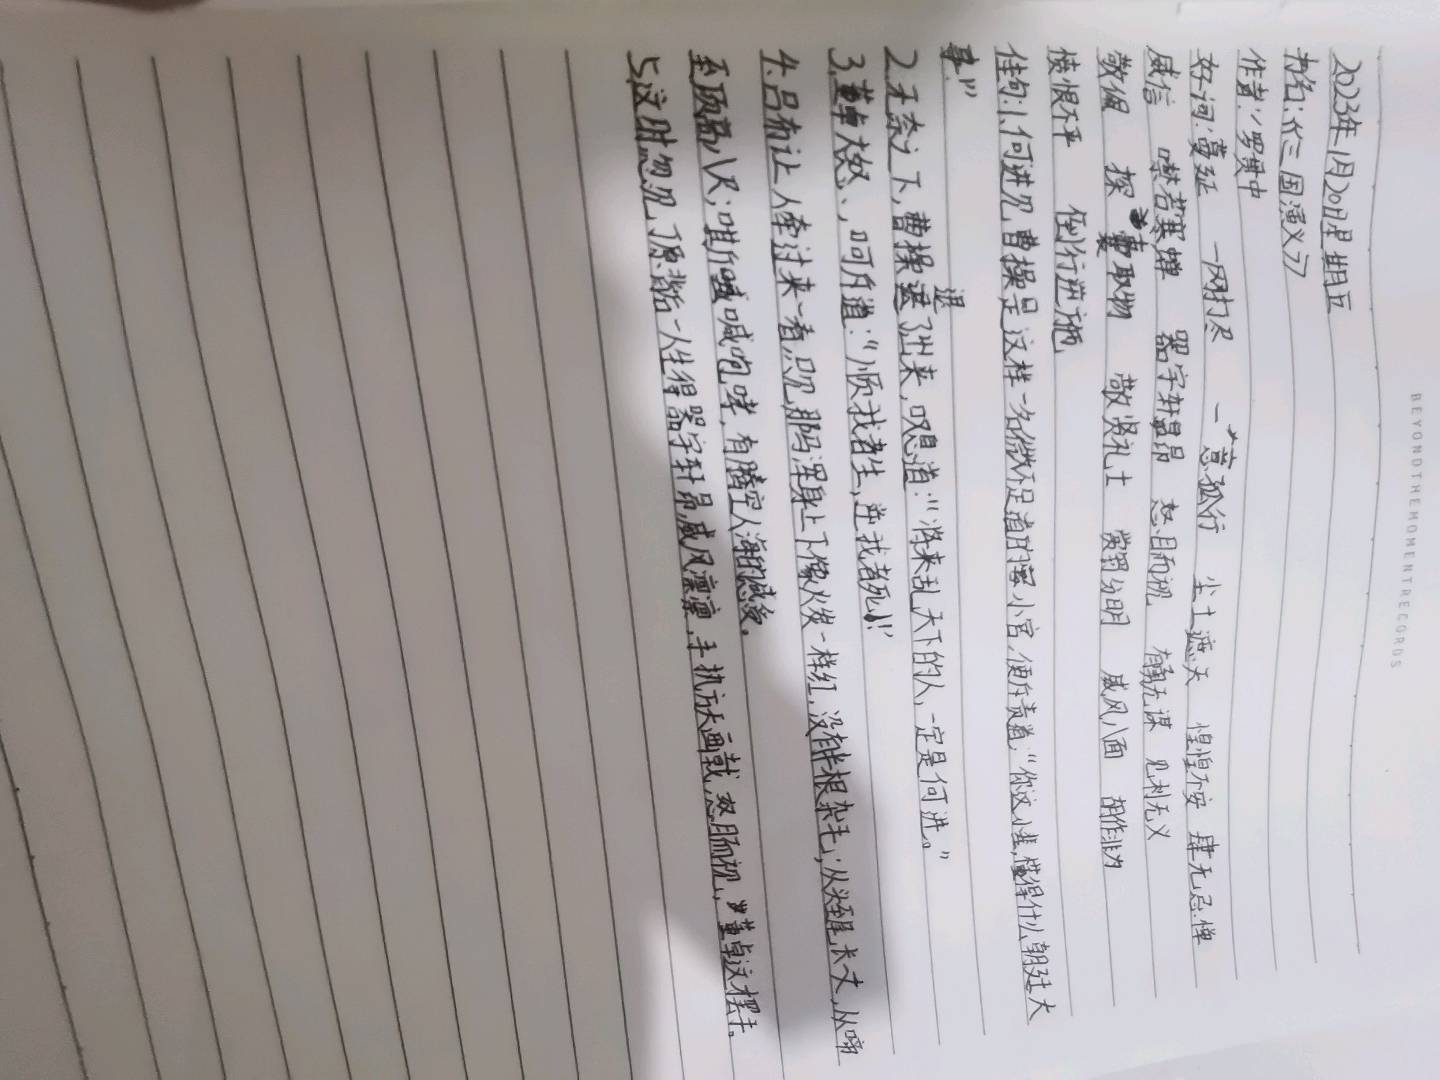 BEYOND THE MOMENT RECORDS
2023年1月20日星期五
书名：《三国演义》
作者：罗贯中
好词：蔓延 一网打尽 一意孤行 尘土遮天 惶惶不安 肆无忌惮
威信 噤若寒蝉 器宇轩昂 怒目而视 有勇无谋 见利无义
敬佩 探囊取物 敬贤礼士 赏罚分明 威风八面 胡作非为
愤恨不平 倒行逆施
佳句：1.何进见曹操是这样一名微不足道的小官，便斥责道：“你这小辈，懂得什么朝廷大
事！”
2.无奈之下，曹操退了出来，叹息道：“将来乱天下的人，一定是何进。”
3.董卓大怒，呵斥道：“顺我者生，逆我者死！”
4.吕布让人牵过来一看，只见那马浑身上下像火炭一样红，没有半根杂毛；从头至尾长一丈，从蹄
至顶高八尺；嘶喊咆哮，有腾空入海的感受。
5.这时忽见丁原背后一人生得器宇轩昂，威风凛凛，手执方天画戟，怒目而视，董卓这摆手。